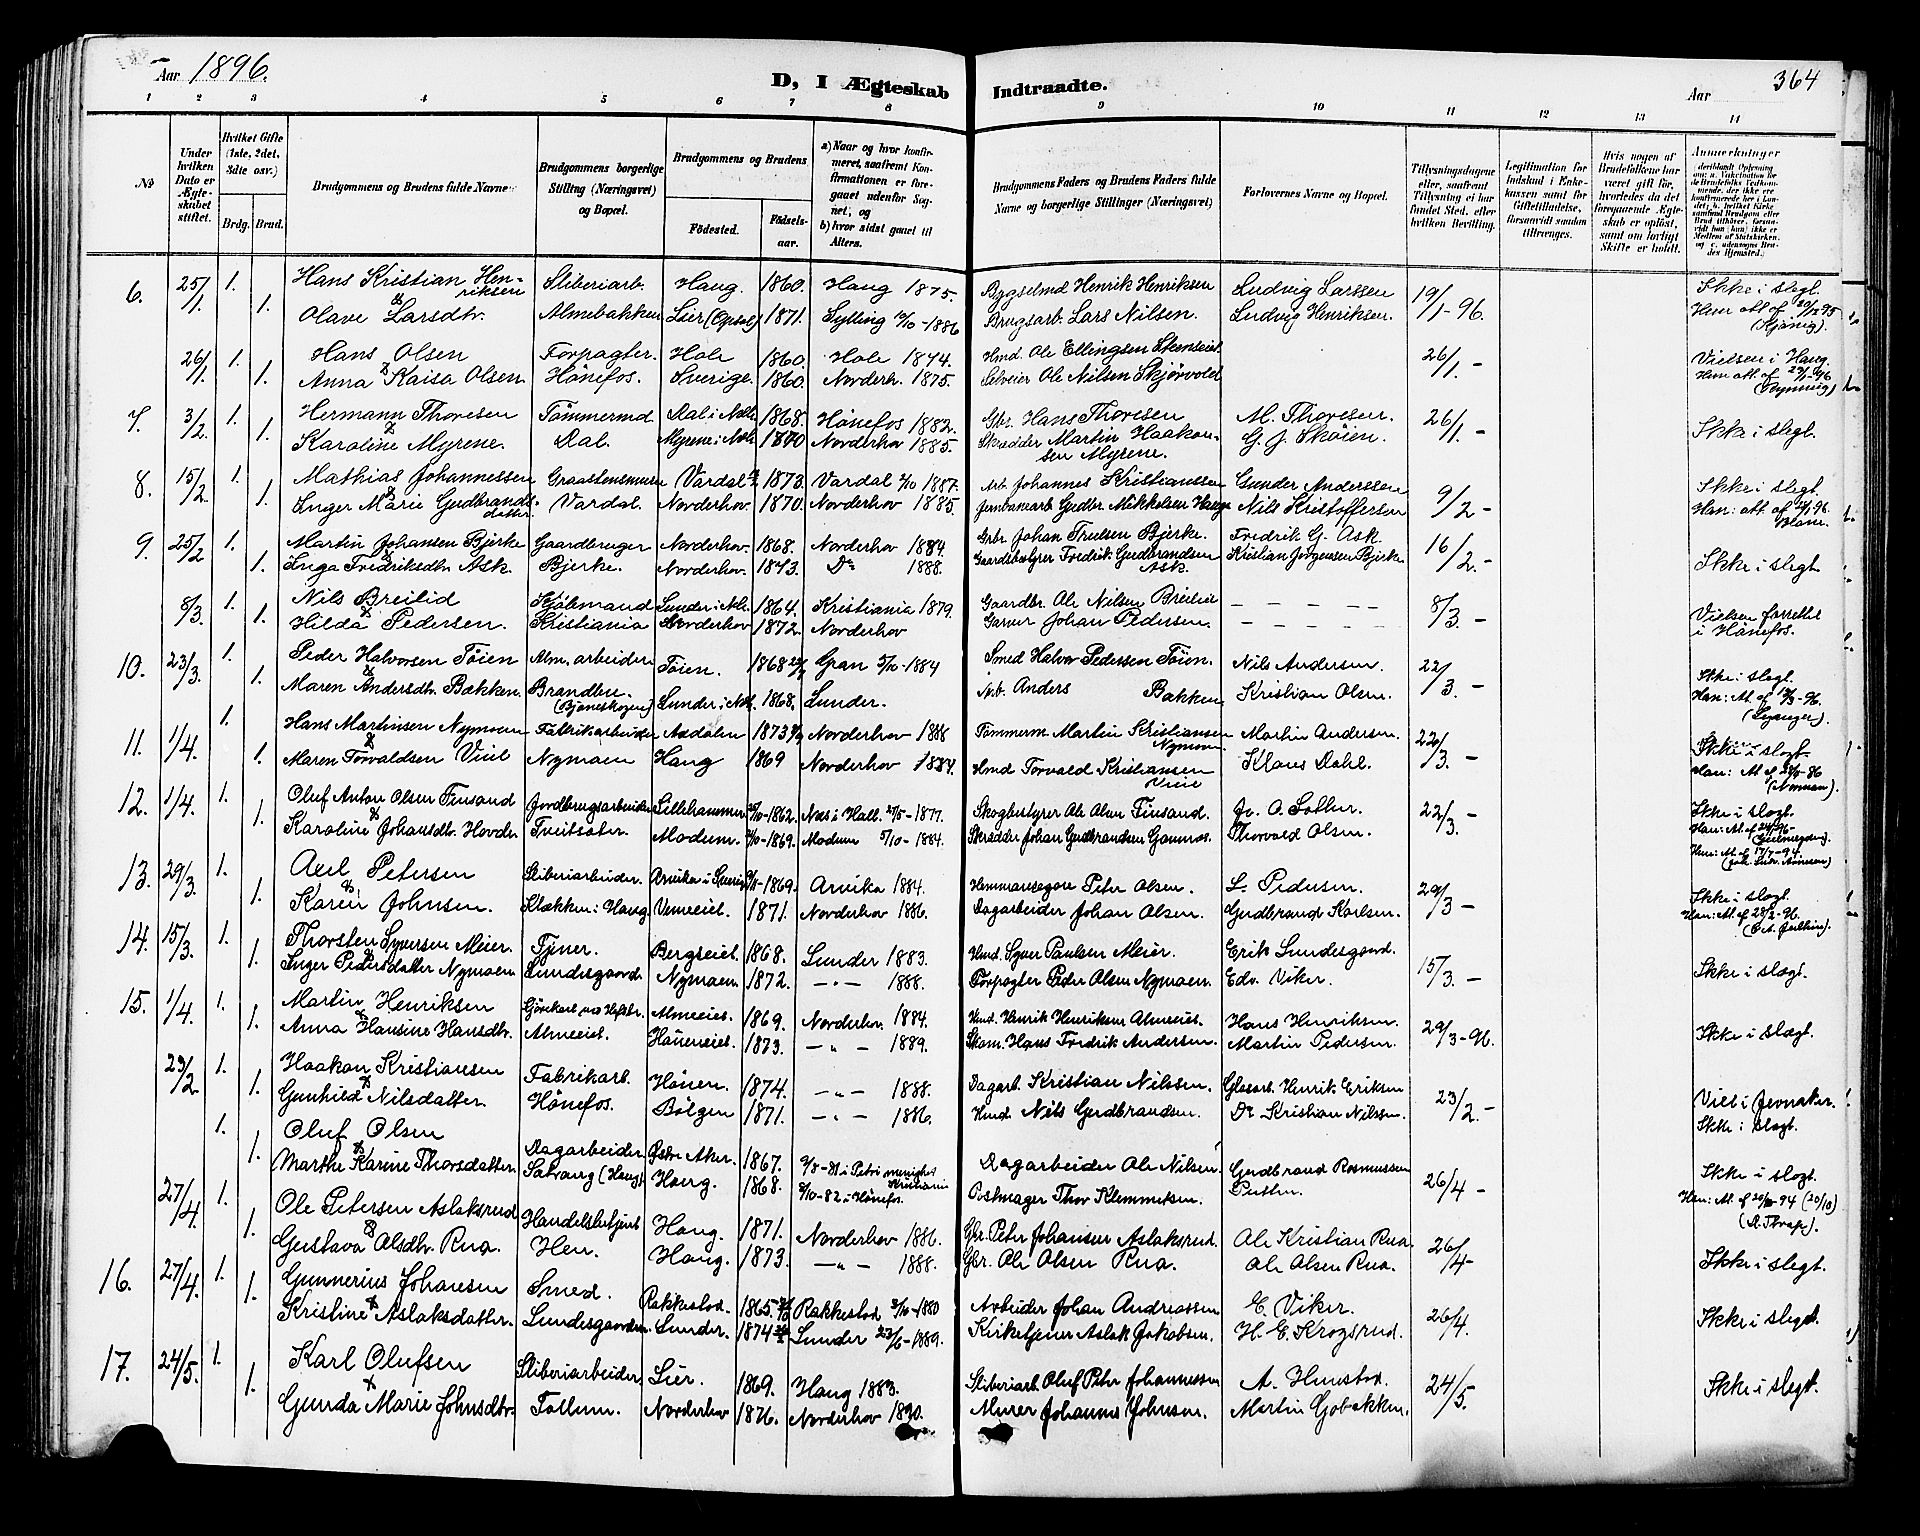 Aar 1896.
D, I Ægteskab Indtraadte.
Aar 364
1 2 3 4 5 6 7 8 9 10 11 12 13 14
No
Under hvilken Dato er Ægteskabet stiftet.
Hvilket Gifte (1ste, 2det, 3dte osv.)
Brdg. Brud.
Brudgommens og Brudens fulde Navne
Brudgommens borgerlige Stilling (Næringsvei) og Bopæl.
Brudgommens og Brudens
Födested. Födselsaar.
a) Naar og hvor konfirmeret, saafremt Konfirmationen er foregaaet udenfor Sognet; og
b) hvor sidst gaaet til Alters.
Brudgommens Faders og Brudens Faders fulde Navne og borgerlige Stillinger (Næringsvei)
Forlovernes Navne og Bopæl.
Tillysningsdagene eller, saafremt Tillysning ei har fundet Sted, efter hvilken Bevilling.
Legitimation for Indskud i Enkekassen samt for Giftetilladelse, forsaavidt saadan tiltrænges.
Hvis nogen af Brudefolkene har været gift før, hvorledes da det foregaaende Ægteskab er opløst, samt om lovligt Skifte er holdt.
Anmærkninger
6. 25/1 1. Hans Kristian Henriksen Sliberiarb. Haug. 1860. Haug 1875. Bygselmd Henrik Henriksen Ludvig Larssen 19/1-96. Ikke i slegt.
1. Olave Larsdtr. Almebakken Lier (Opsal) 1871. Sylling 10/10-1886 Brugsarb. Lars Nilsen. Ludvig Henriksen.
26/1. 1. Hans Olsen Forpagter. Hole 1860. Hole 1874. Hmd. Ole Ellingsen Stenseiet 26/1. - Vielsen i Haug.
1. Anna Kaisa Olsen. Hönefos. Sverige. 1860. Norderh. 1875. Selveier Ole Nilsen Skjörvold
7. 3/2 1. Hermann Thoresen Tömmermd Dal i Ndh. 1868. Hönefos 1882. Gbr. Hans Thoresen M. Thoresen. 26/1. - Ikke i slegt.
1. Karoline Myrene. Dal. Myrene i Ndh. 1870 Norderhov 1885. Skrædder Martin Haakonsen Myrene. G. J. Skøien.
8. 15/2 1. Mathias Johannessen Graastensmurer Vardal 1873. Vardal 2/10 1887. Arb. Johannes Kristianssen Gunder Anderssen 9/2 - Ikke i slegt.
1. Inger Marie Gudbrandsdatter. Vardal. Norderhov. 1870. Norderhov 1885. Jernbanearb Gudbr. Mikkelsen Haug Nils Kristoffersen
9. 25/2 1. Martin Johansen Bjerke Gaardbruger Norderhov. 1868. Norderhov 1884. Grbr. Johan Truelsen Bjerke. Fredrik G. Ask. 16/2. - Ikke i slegt
1. Inga Fredriksdtr. Ask. Bjerke. Norderhov. 1873. Do 1888. Gaardsbestyrer Fredrik Gudbrandsen Ask Kristian Jörgensen Bjerke
8/3. 1. Nils Breilid Kjöbmand Lunder i Ndh. 1864. Kristiania 1879. Gaardbr. Ole Nilsen Breilid 8/3. - Vielsen forrettet i Hönefos.
1. Hilda Pedersen. Kristiania Norderhov 1872. Norderhov Garver Johan Pedersen.
10. 23/3. 1. Peder Halvorsen Töien Alm. arbeider Töien. 1868 Gran 5/10-1884 Smed Halvor Pederssen Töien. Nils Andersen. 22/3. - Ikke i slegt.
1. Maren Andersdtr. Bækken. Brandbu. (Bjoneskogen) Lunder i Ndh. 1868. Lunder. Arb. Anders Bakken Kristian Olsen.
11. 1/4. 1. Hans Martinsen Nymoen Fabrikarbeider Aadalen 1873 Norderhov 1888 Tömmerm. Martin Kristiansen Nymoen Martin Andersen. 22/3. - Ikke i slegt.
1. Maren Torvaldsen Viul Nymoen Haug 1869 Norderhov 1884. Hmd Torvald Kristiansen Viul Klaus Dahl.
12. 1/4. 1. Oluf Anton Olsen Finsand Jordbrugsarbeider Lillehammer 1862. Næs i Hall. 27/5-1877. Skogbestyrer Ole Olsen Finsand. Jo. O. Sollur. 22/3. - Ikke i slegt.
1. Karoline Johansdtr. Hovde. Tveitsæter. Modum. 1869. Modum 5/10-1884. Skrædder Johan Gudbrandsen Gamnos. Thorvald Olsen.
13. 29/3. 1. Axel Petersen Sliberiarbeider. Arvika i Sverig 1869. Arvika 1884. Hemmansegare Peter Olsen. L. Pedersen. 29/3 - Ikke i slegt.
1. Karen Johnsen. Klækken i Haug. Vemeeiet. 1871. Norderhov 1886. Dagarbeider Johan Olsen. Gudbrand Karlsen. Han: At. af 28/2-96.
14. 15/3. 1. Thorsten Syversen Meier. Tyner. Bergseiet. 1868. Lunder 1883. Hmd. Syver Paulsen Meier. Erik Lundesgaard. 15/3. - Ikke i slegt.
1. Inger Pedersdatter Nymoen Lundesgaard Nymoen. 1872. -„- 1888. Forpagter Peder Olsen Nymoen. Edv. Viker.
15. 1/4. 1. Martin Henriksen Almeeiet. 1869. Norderhov. 1884. Hmd. Henrik Henriksen Almeeiet. Hans Henriksen. 29/3-96. Ikke i slegt.
1. Anna Hansine Hansdtr. Almeeiet. Höneneiet. 1873. -„- 1889. Skom. Hans Fredrik Andersen. Martin Pedersen.
23/2. 1. Haakon Kristiansen Fabrikarb. Hönen. 1874. -„- 1888. Dagarb. Kristian Nilssen. Glasarb. Henrik Eriksen 23/2. - Viet i Jevnaker.
1. Gunhild Nilsdatter. Hönefos. Bölgen 1871. -„- 1886. Hmd. Nils Gudbrandsen. Do Kristian Nilssen. Ikke i slegt.
1. Oluf Olsen Dagarbeider Östre Aker. 1867. 9/8-81 i Petri menighet Kristiania Dagarbeider Ole Nilsen. Gudbrand Rasmussen 26/4 - Ikke i slegt.
1. Marthe Karine Thorsdatter. (Haug) Haug. 1868. 8/10-82 i Hönefos. Postmager Thor Klemmetsen. Putten.
27/4. 1. Ole Petersen Aslaksrud Handelsbetjent Haug. 1871. Norderhov 1886. Gbr. Peter Johansen Aslaksrud. Ole Kristian Rua. 26/4- Ikke i slegt.
1. Gustava Olsdtr. Rua. Hen. Haug. 1873. -„- 1888. Gbr. Ole Olsen Rua. Ole Olsen Rua.
16. 27/4. 1. Gunnerius Johansen Smed. Rakkestad. 1865 Rakkestad 2/10-1880 Arbeider Johan Andreassen E. Viker. 26/4. Ikke i slegt.
1. Kristine Aslaksdatter. Lundesgaarden. Lunder. 1874 Lunder 23/6-1889. Kirketjener Aslak Jakobsen. H. E. Krogsrud.
17. 24/5. 1. Karl Olufsen Sliberiarbeider. Lier. 1869. Haug 1883. Sliberiarb. Oluf Peter Johannessen A. Himstad. 24/5. Ikke i slegt.
1. Gunda Marie Johnsdtr. Follum. Norderhov 1876. Norderhov 1890. Murer Johannes Johnsen. Martin Gobakken.